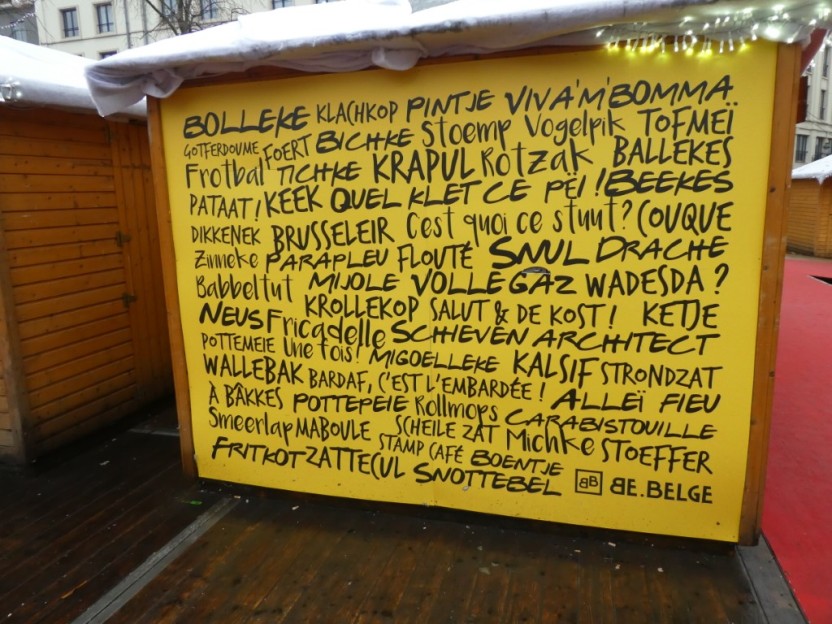 BOLLEKE KLACHKOP PINTJE VIVA'M'BOMMA
GOTFERDOUME FOERT BICHKE Stoemp Vogelpik TOFMEÏ
Frotbal TICHKE KRAPUL Rotzak BALLEKES
PATAAT! KEEK QUEL KLET CE PEÏ! BEEKES
DIKKENEK BRUSSELEIR C'est quoi ce stuut? COUQUE
Zinneke PARAPLEU FLOUTÉ SNUL DRACHE
Babbeltut MIJOLE VOLLE GAZ WADESDA?
KROLLEKOP SALUT & DE KOST! KETJE
NEUS Fricadelle SCHIEVEN ARCHITECT
POTTEMEIE Une fois! MIGOELLEKE KALSIF STRONDZAT
WALLEBAK BARDAF, C'EST L'EMBARDÉE! ALLEÏ FIEU
À BÂKKES POTTEPEIE Rollmops CARABISTOUILLE
Smeerlap MABOULE SCHEILE ZAT Michke STOEFFER
FRITKOT ZATTECUL STAMP CAFÉ BOENTJE
SNOTTEBEL BB BE.BELGE